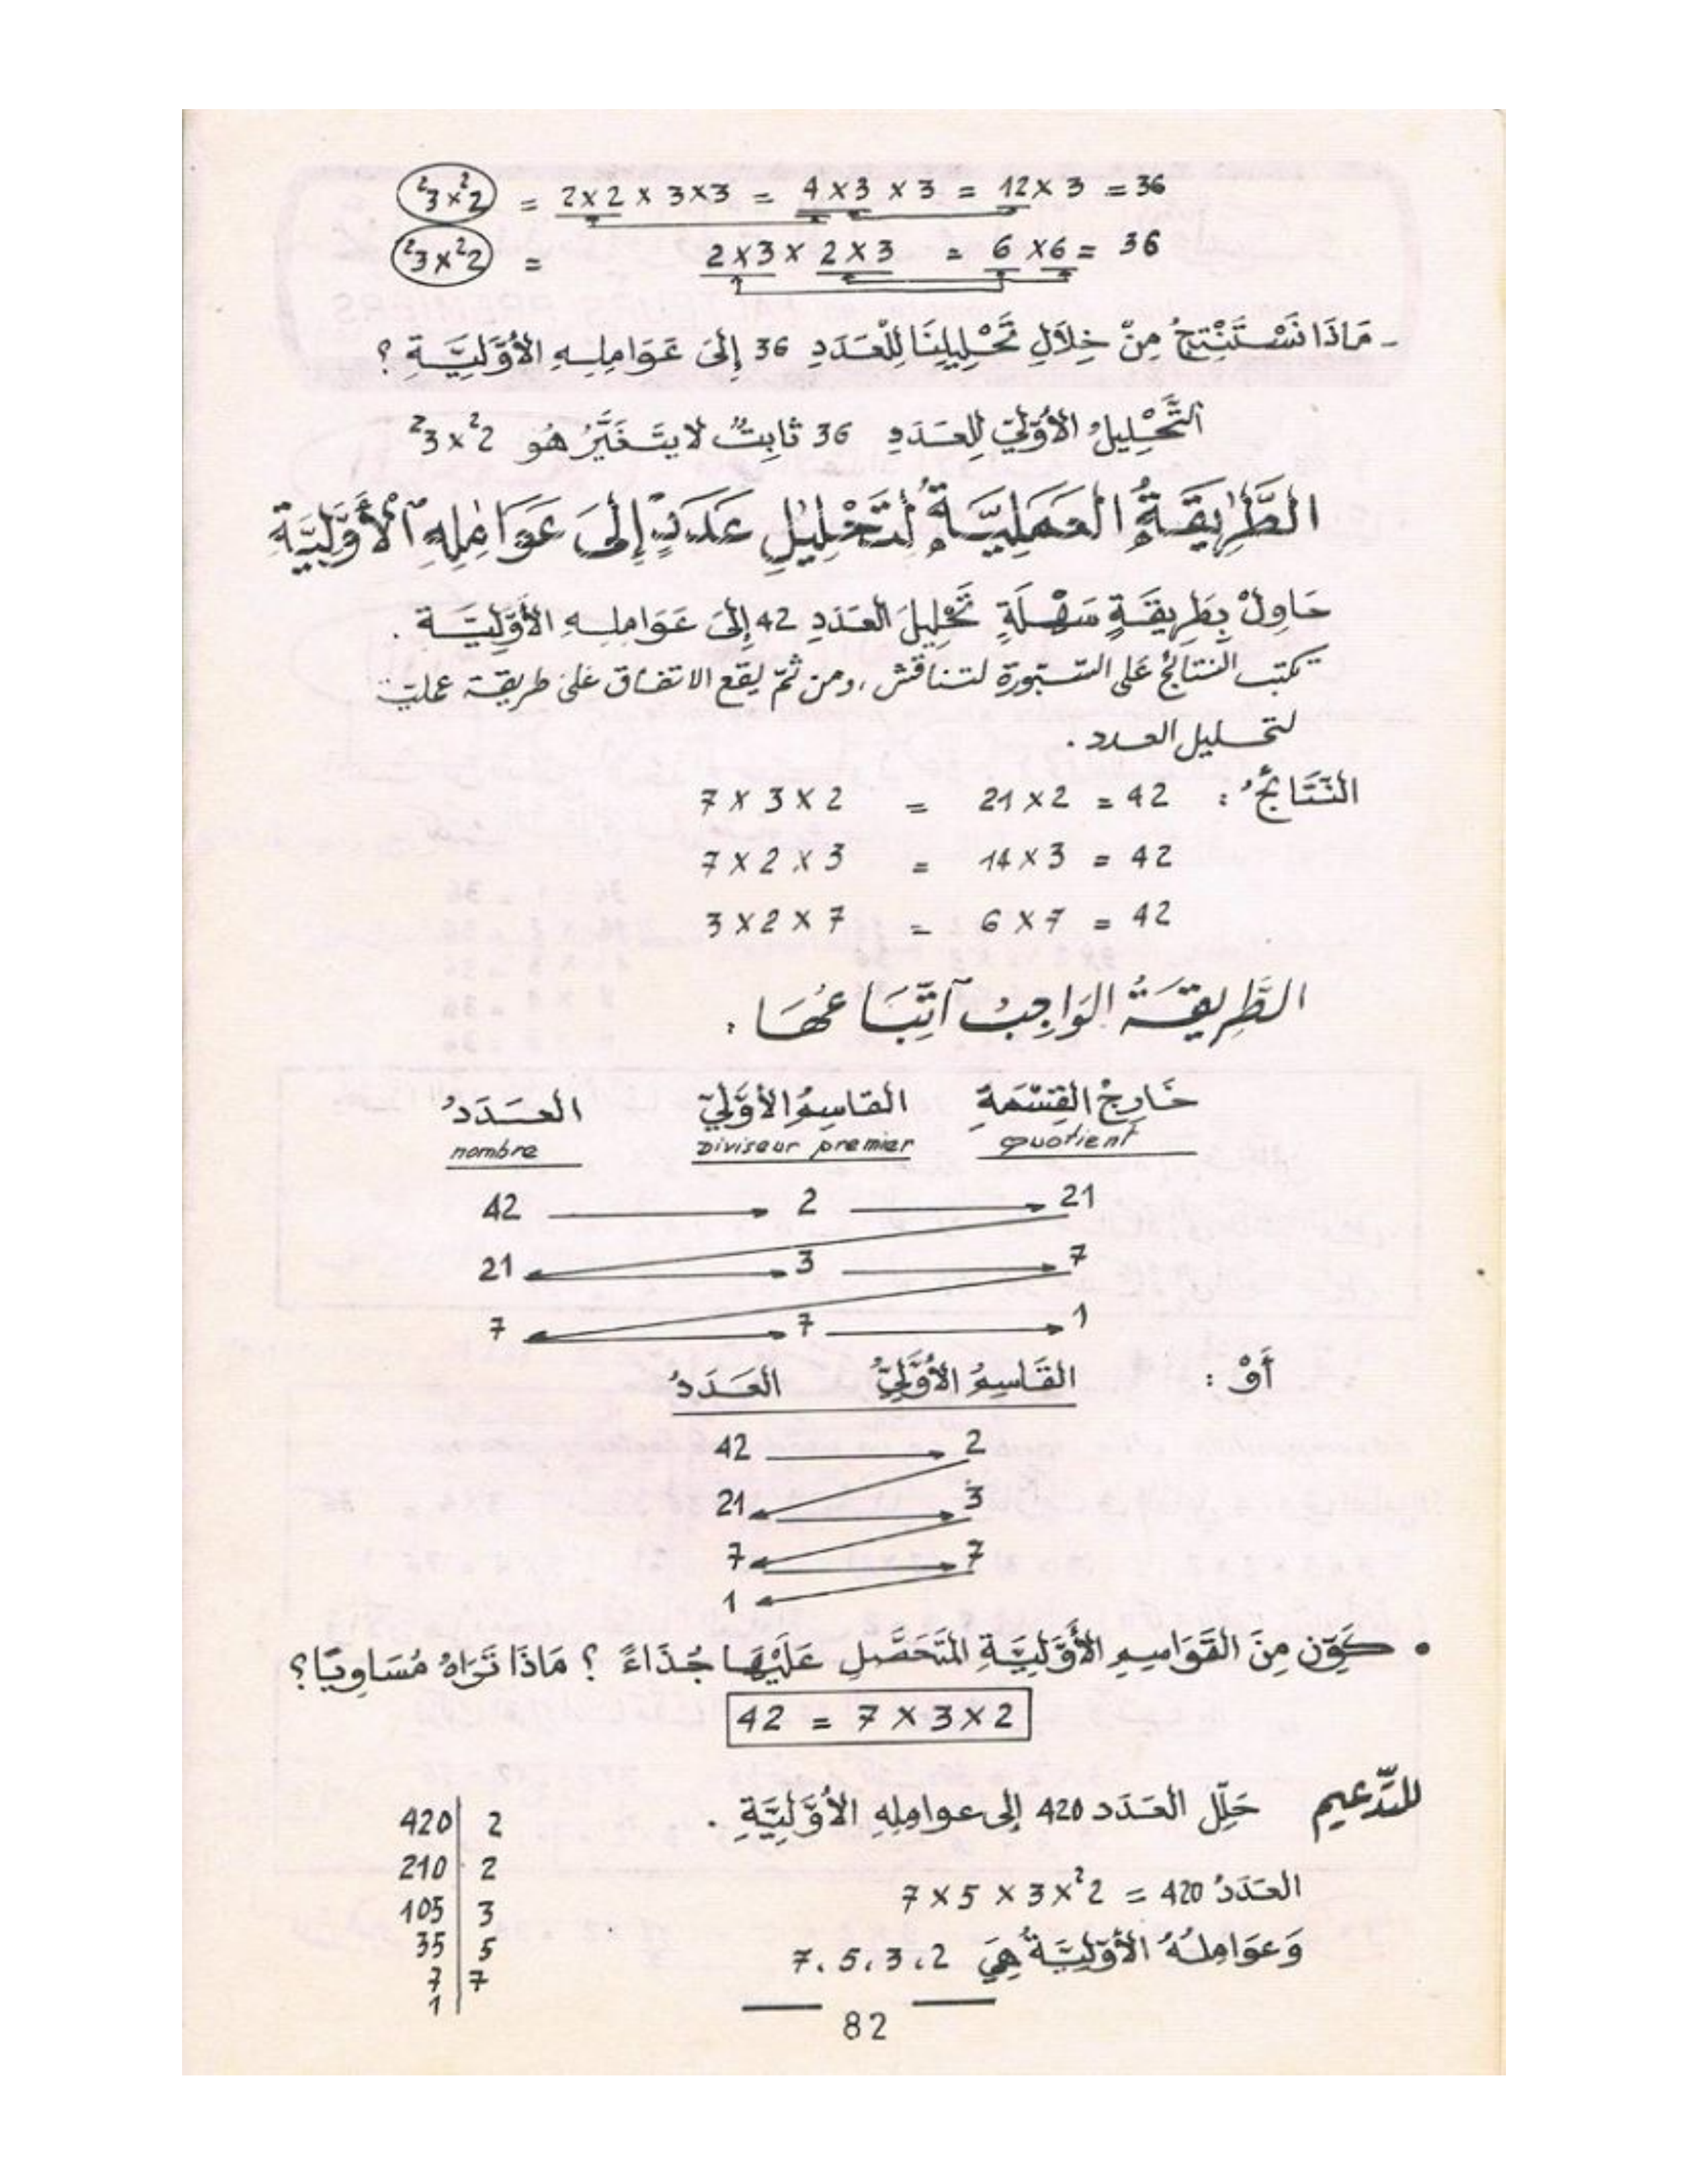 ²3×²2 = 2×2 × 3×3 = 4×3 × 3 = 12×3 = 36
²3×²2 = 2×3 × 2×3 = 6×6 = 36
- مَاذَا نَسْتَنْتِجُ مِنْ خِلَالِ تَحْلِيلِنَا لِلْعَدَدِ 36 إِلَى عَوَامِلِهِ الأَوَّلِيَّةِ ؟
التَّحْلِيلُ الأَوَّلِيّ لِلعَدَدِ 36 ثَابِتٌ لا يَتَغَيَّرُ هُو ²3×²2
الطَّرِيقَةُ العَمَلِيَّةُ لِتَحْلِيلِ عَدَدٍ إِلَى عَوَامِلِهِ ٱلأَوَّلِيَّةِ
حَاوِلْ بِطَرِيقَةٍ سَهْلَةٍ تَحْلِيلَ العَدَدِ 42 إِلَى عَوَامِلِهِ الأَوَّلِيَّة .
تكتب النتائج على السّبّورة لتناقش ، ومن ثمّ يقع الاتفاق على طريقة عمليّة
لتحليل العدد .
النَّتَائِجُ : 42 = 2×21 = 2×3×7
42 = 3×14 = 3×2×7
42 = 7×6 = 7×2×3
الطَّرِيقَةُ الوَاجِبُ ٱتِّبَاعُهَا :
العَدَدُ القَاسِمُ الأَوَّلِيّ خَارِجُ القِسْمَةِ
nombre Diviseur premier quotient
42 → 2 → 21
21 → 3 → 7
7 → 7 → 1
أَوْ : القَاسِمُ الأَوَّلِيُّ العَدَدُ
42 → 2
21 → 3
7 → 7
1
• كَوِّن مِنَ القَوَاسِمِ الأَوَّلِيَّةِ المُتَحَصَّلِ عَلَيْهَا جُذَاءً ؟ مَاذَا تَرَاهُ مُسَاوِيًا ؟
42 = 7×3×2
للتّدعيم حَلِّل العَدَد 420 إلى عوامِلِهِ الأَوَّلِيَّةِ .
العَدَدُ 420 = ²2×3×5×7
وَعَوَامِلُهُ الأَوَّلِيَّةُ هِيَ 2 ، 3 ، 5 ، 7
420 | 2
210 | 2
105 | 3
35 | 5
7 | 7
1 |
82